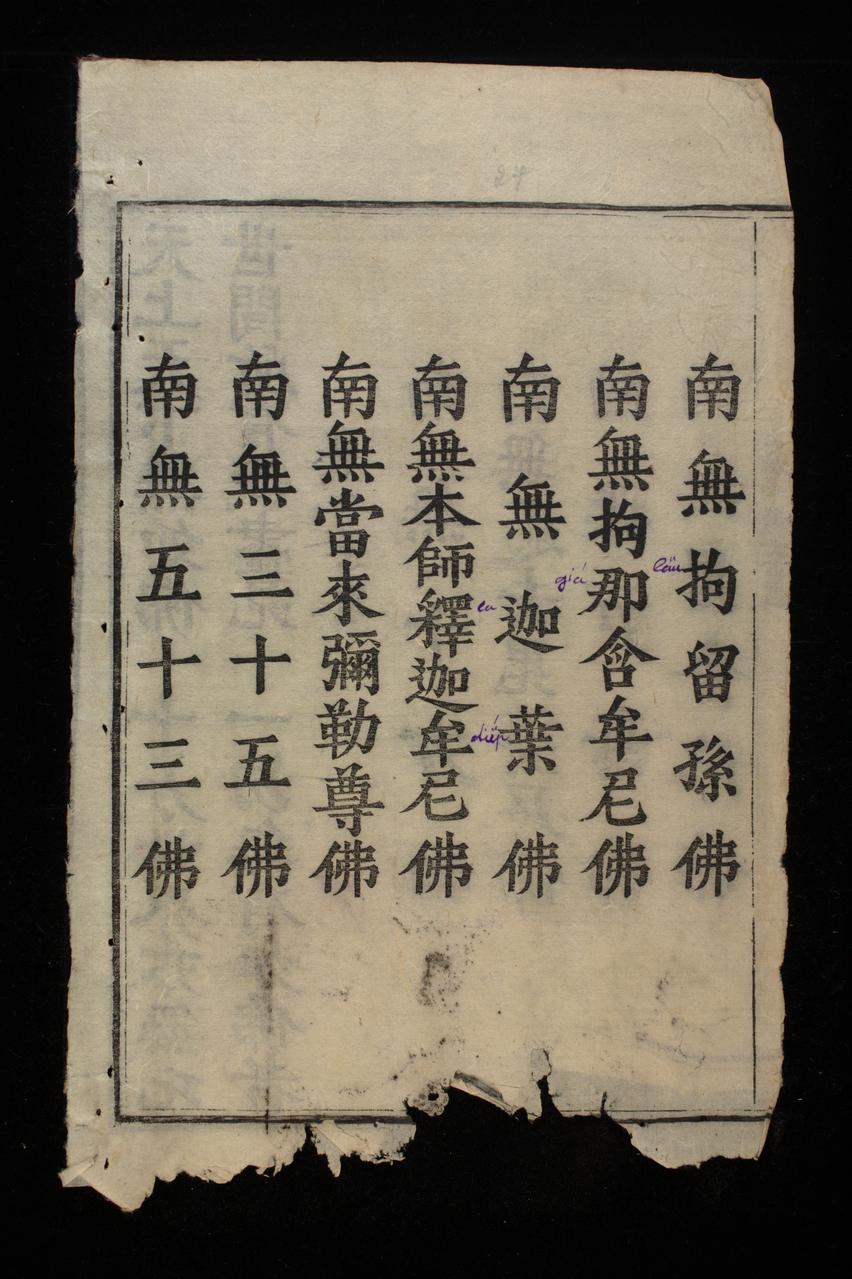 南無拘留孫佛
南無拘那含牟尼佛
南無迦葉佛
南無本師釋迦牟尼佛
南無當來彌勒尊佛
南無三十五佛
南無五十三佛
27
lâu
giá
ca
diếp